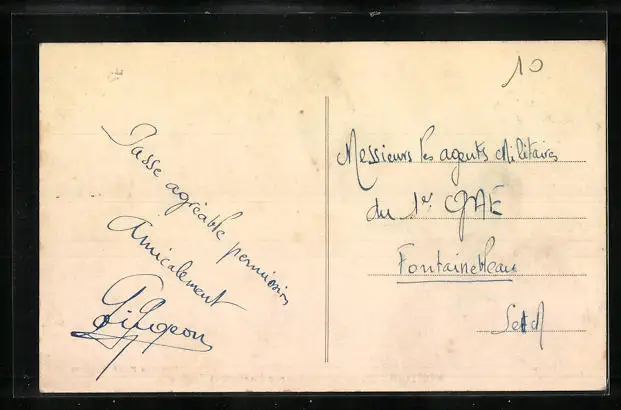 10
Passe agréable permission
Amicalement
Messieurs les agents Militaires
du 1er GAE
Fontainebleau